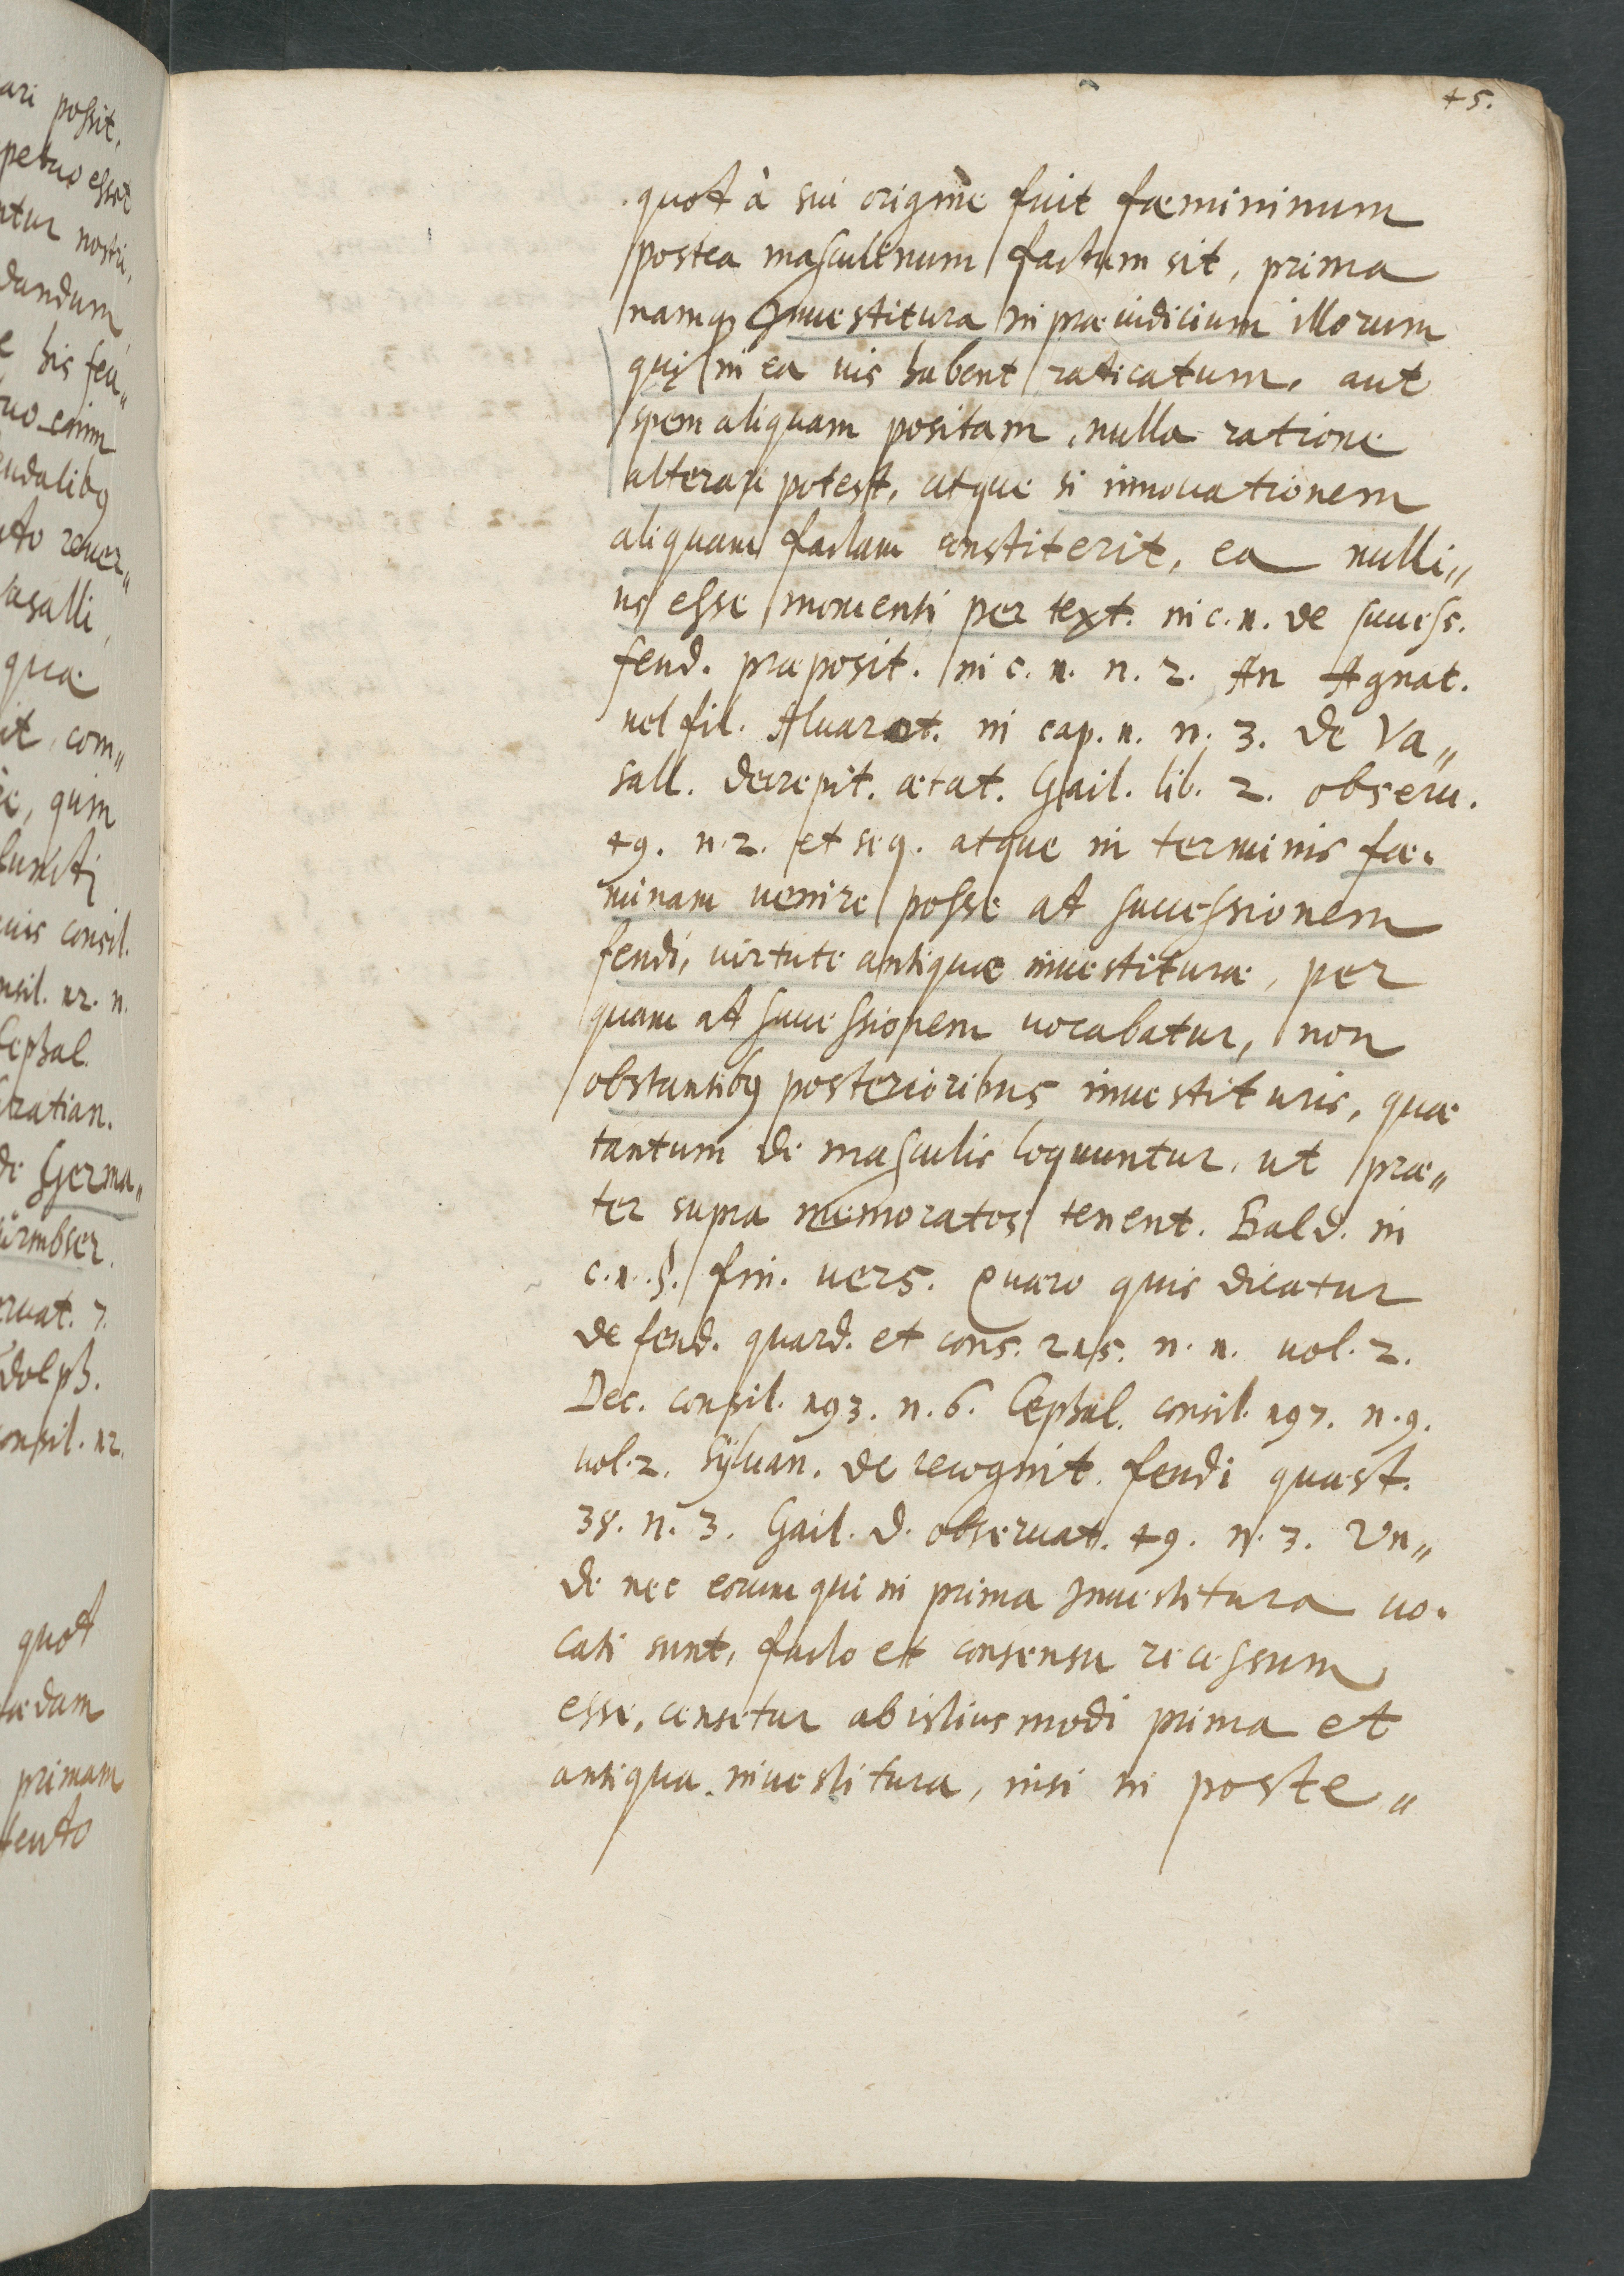 ari possit,
petuo esset
ntur nostri,
dandum
e his feu„
uo enim
eudalibꝫ
uto reuer„
asalli,
quæ
it, com„
quin
uis consil.
nsil. 12. n.
Cephal.
Gratian.
de Germa„
ürmbser.
eruat. 7.
dolph.
onsil. 12.
quod
ædam
primam
feudo
45.
quod à sui origine fuit fæmininum
postea masculinum factum sit, prima
namqꝫ Inuestitura in præiudicium illorum
qui in ea ius habent radicatum, aut
spem aliquam positam, nulla ratione
alterari potest, atque si innouationem
aliquam factam constiterit, ea nulli„
us esse momenti per text. in c. 1. de success.
feud. præposit. in c. 1. n. 2. An Agnat.
uel fil. Aluarot. in cap. 1. n. 3. de Va„
sall. decrepit. ætat. Gail. lib. 2. obseru.
49. n. 2. et seq. atque in terminis fæ„
minam uenire posse ad successionem
feudi, uirtute antiquæ inuestituræ, per
quam ad successionem uocabatur, non
obstantibꝫ posterioribus inuestituris, quæ
tantum de masculis loquuntur, ut præ„
ter supra memoratos tenent. Bald. in
c. 1. §. fin. uers. Quæro quis dicatur
de feud. guard. et cons. 215. n. 1. uol. 2.
Dec. consil. 193. n. 6. Cephal. consil. 197. n. 9.
uol. 2. Syluan. de recognit. feudi quæst.
38. n. 3. Gail. d. obseruat. 49. n. 3. Vn„
de nec eorum qui in prima Inuestitura uo„
cati sunt, facto et consensu recessum
esse, censetur ab istiusmodi prima et
antiqua inuestitura, nisi in poste„